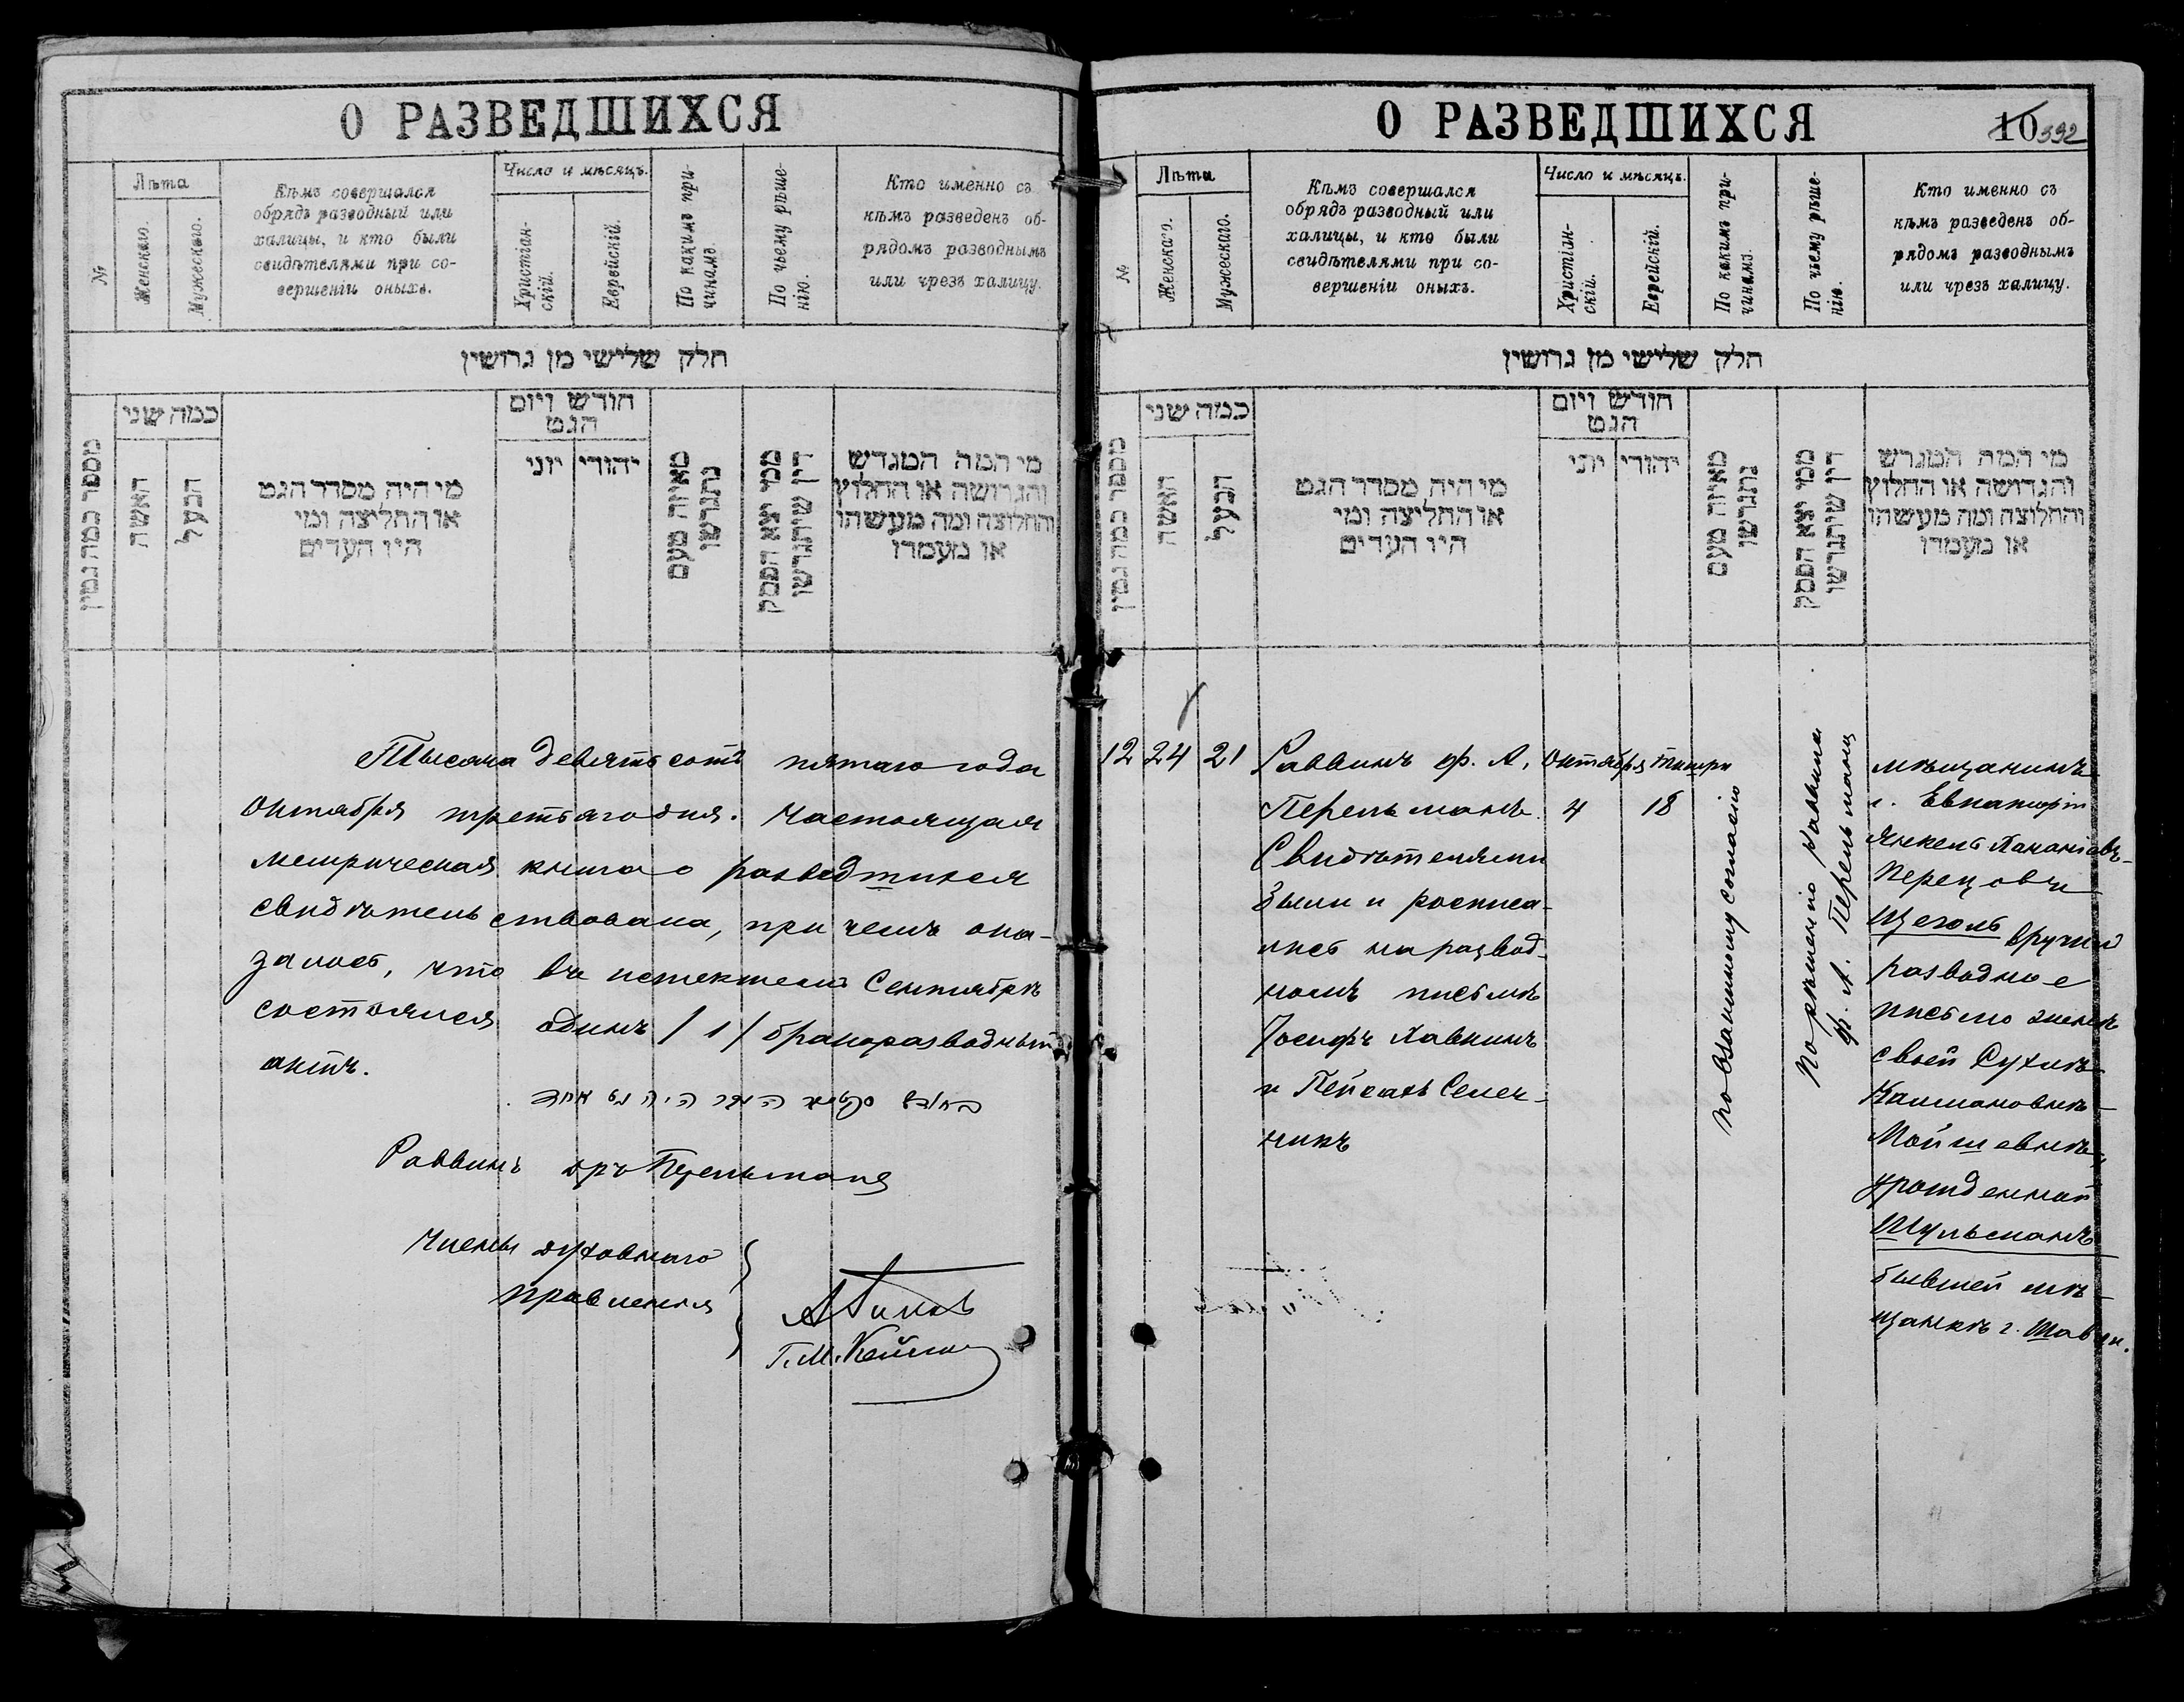 О РАЗВЕДШИХСЯ
№
Лѣта
Женскаго.
Мужескаго.
Кѣмъ совершался
обрядъ разводный или
халицы, и кто были
свидѣтелями при со-
вершеніи оныхъ.
Число и мѣсяцъ.
Христіан-
скій.
Еврейскій.
По какимъ при-
чинамъ.
По чьему рѣше-
нію.
Кто именно съ
кѣмъ разведенъ об-
рядомъ разводнымъ
или чрезъ халицу.
חלק שלישי מן גרושין
מספר כמה גטין
כמה שני
האשה
הבעל
מי היה מסדר הגט
או החליצה ומי
היו העדים
חודש ויום
הגט
יהודי
יוני
מאיזה טעם
נתגרשו
ממי יצא הפסק
דין שיתגרשו
מי המה המגרש
והגרושה או החלוץ
והחלוצה ומה מעשהו
או מעמדו
Тысяча девятьсотъ пятаго года
Октября третьяго дня. Настоящая
метрическая книга о разведшихся
свидѣтельствована, при чемъ ока-
залось, что въ истекшемъ Сентябрѣ
состоялся одинъ /1/ бракоразводный
актъ.
Раввинъ дръ Перельманъ
Члены духовнаго
правленія
Г. М.
О РАЗВЕДШИХСЯ
10 392
№
Лѣта
Женскаго.
Мужескаго.
Кѣмъ совершался
обрядъ разводный или
халицы, и кто были
свидѣтелями при со-
вершеніи оныхъ.
Число и мѣсяцъ.
Христіан-
скій.
Еврейскій.
По какимъ при-
чинамъ.
По чьему рѣше-
нію.
Кто именно съ
кѣмъ разведенъ об-
рядомъ разводнымъ
или чрезъ халицу.
חלק שלישי מן גרושין
מספר כמה גטין
כמה שני
האשה
הבעל
מי היה מסדר הגט
או החליצה ומי
היו העדים
חודש ויום
הגט
יהודי
יוני
מאיזה טעם
נתגרשו
ממי יצא הפסק
דין שיתגרשו
מי המה המגרש
והגרושה או החלוץ
והחלוצה ומה מעשהו
או מעמדו
12 24 21
Раввинъ ф. А.
Перельманъ.
Свидѣтелями
были и росписа-
лись на развод-
номъ письмѣ
Іосифъ Хавкинъ
и Пейсахъ Семен-
никъ
Октября
4
Тишри
18
по взаимному согласію
по рѣшенію раввина
ф. А. Перельмана
мѣщанинъ
г. Евпаторіи
Янкель Хананіавъ-
Перецовъ
Щеголь вручилъ
разводное
письмо женѣ
своей Сухимъ
Калмановнѣ-
Мойшевнѣ,
урожденной
Шульманъ
бывшей мѣ-
щанкѣ г. Шавли.